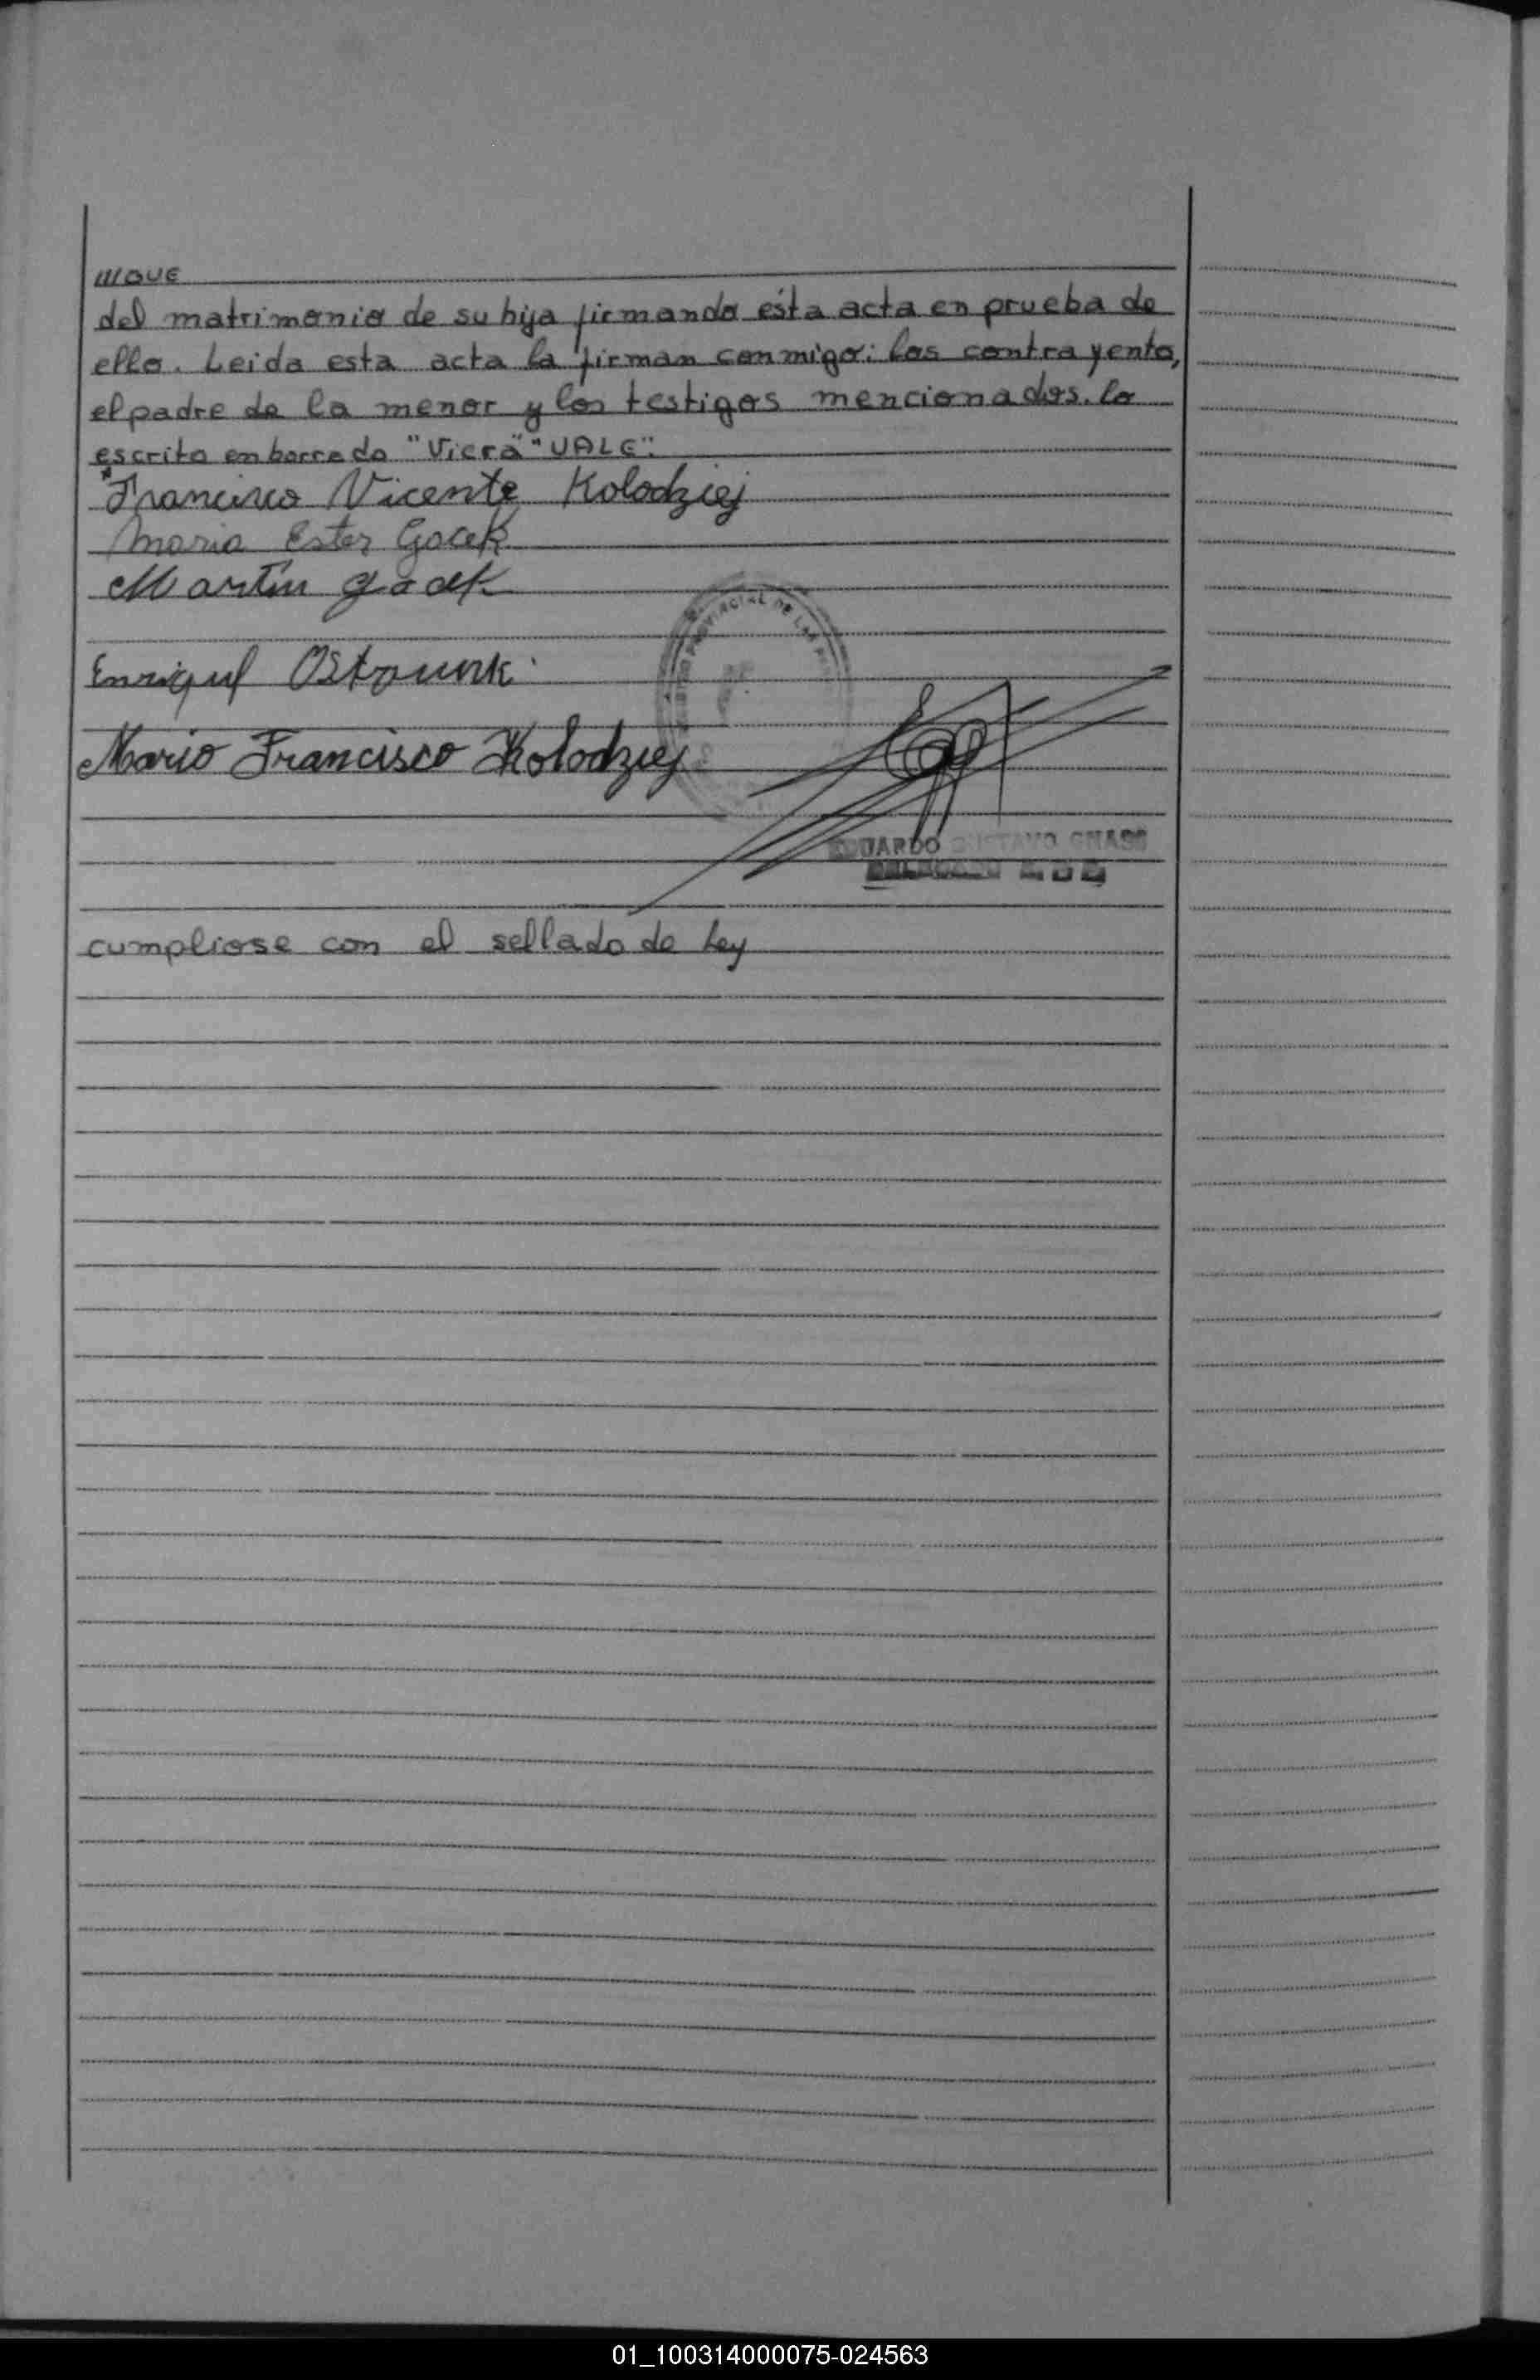 ///QUE
del matrimonio de su hija firmando ésta acta en prueba de
ello. Leida esta acta la firman conmigo: los contrayente,
el padre de la menor y los testigos mencionados. lo
escrito en borrado "Viera" "VALE".
Francisco Vicente Kolodziej
Maria Ester Gacek
Martín Gacek
PROVINCIAL DE LAS
Enrique
Mario Francisco Kolodziej
EDUARDO GUSTAVO
DELEGADO
cumpliose con el sellado de Ley
01_100314000075-024563